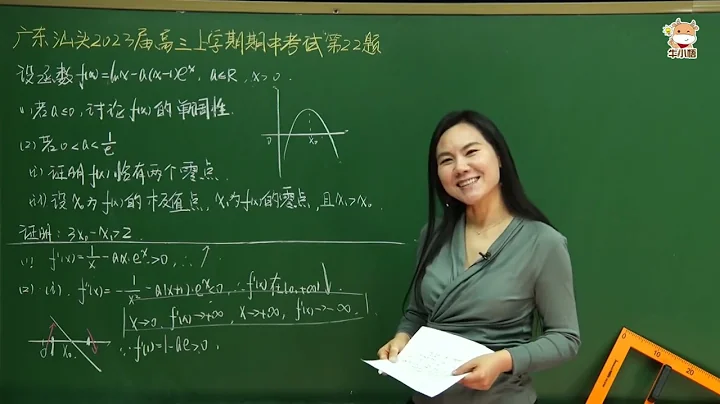 广东汕头2023届高三上学期期中考试第22题
设函数f(x)=lnx-a(x-1)eˣ, a∈R, x>0.
(1) 若a≤0, 讨论f(x)的单调性.
(2) 若0<a<1/e
(i) 证明f(x)恰有两个零点.
(ii) 设x₀为f(x)的极值点, x₁为f(x)的零点, 且x₁>x₀.
证明: 3x₀-x₁>2
(1) f'(x)=1/x-axeˣ>0, ∴ ↑
(2) (i). f''(x)=-1/x²-a(x+1)·eˣ<0, ∴f'(x)在(0,+∞)↓
x→0, f'(x)→+∞, x→+∞, f'(x)→-∞.
∵f'(1)=1-ae>0,
x₀
0 x₀
牛小栖
0 10 20